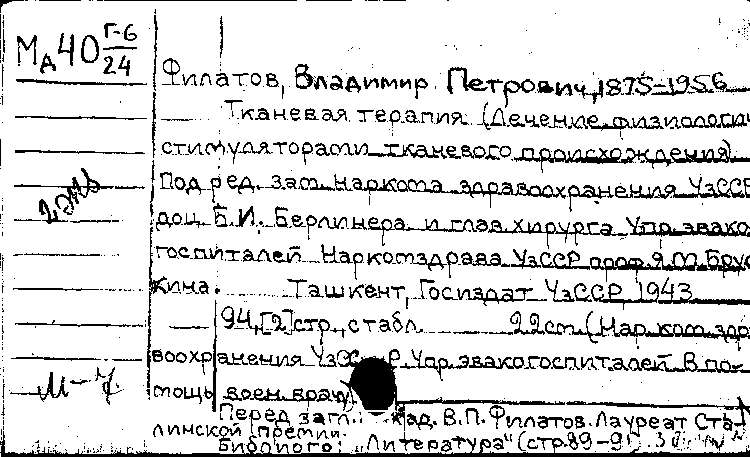 Мд40 Г-6/24
Филатов, Владимир Петрович, 1875-1956
Тканевая терапия (Лечение физиологи
стимуляторами тканевого происхождения)
Под ред. зам. наркома здравоохранения УзССР
2 экз
доц. Б.И. Берлинера и глав. хирурга Упр. эвако
госпиталей Наркомздрава УзССР проф. Я.М. Брус
кина. Ташкент, Госиздат УзССР 1943
94,[2]стр., с табл. 22см. (Нар. ком. здра
воохранения УзССР. Упр. эвакогоспиталей. В по-
мощь воен. врачу)
Перед загл.: кад. В.П. Филатов. Лауреат Ста-
линской премии.
Библиогр: "Литература" (стр.89-91).